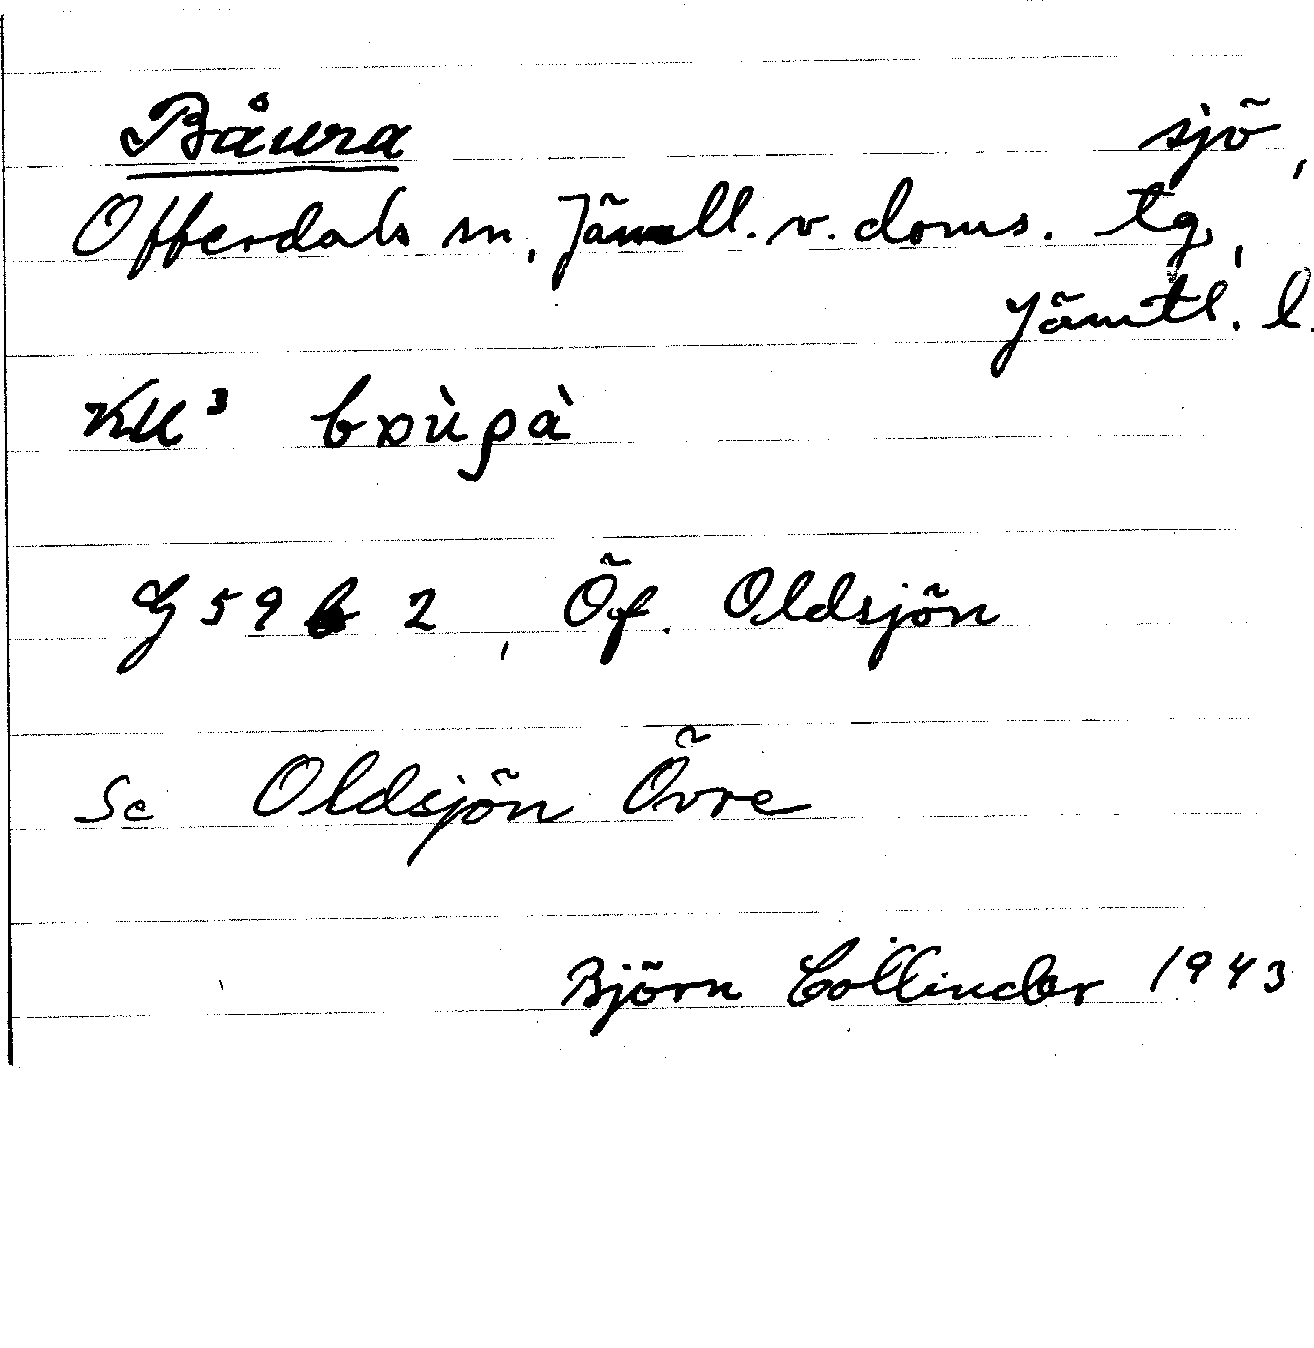 Båura sjö,
Offerdals sn, Jämtl. v. doms. tg,
Jämtl. l.
KU³ bɒùρà
G 59 b 2, Öf. Oldsjön
Se Oldsjön Övre
Björn Collinder 1943